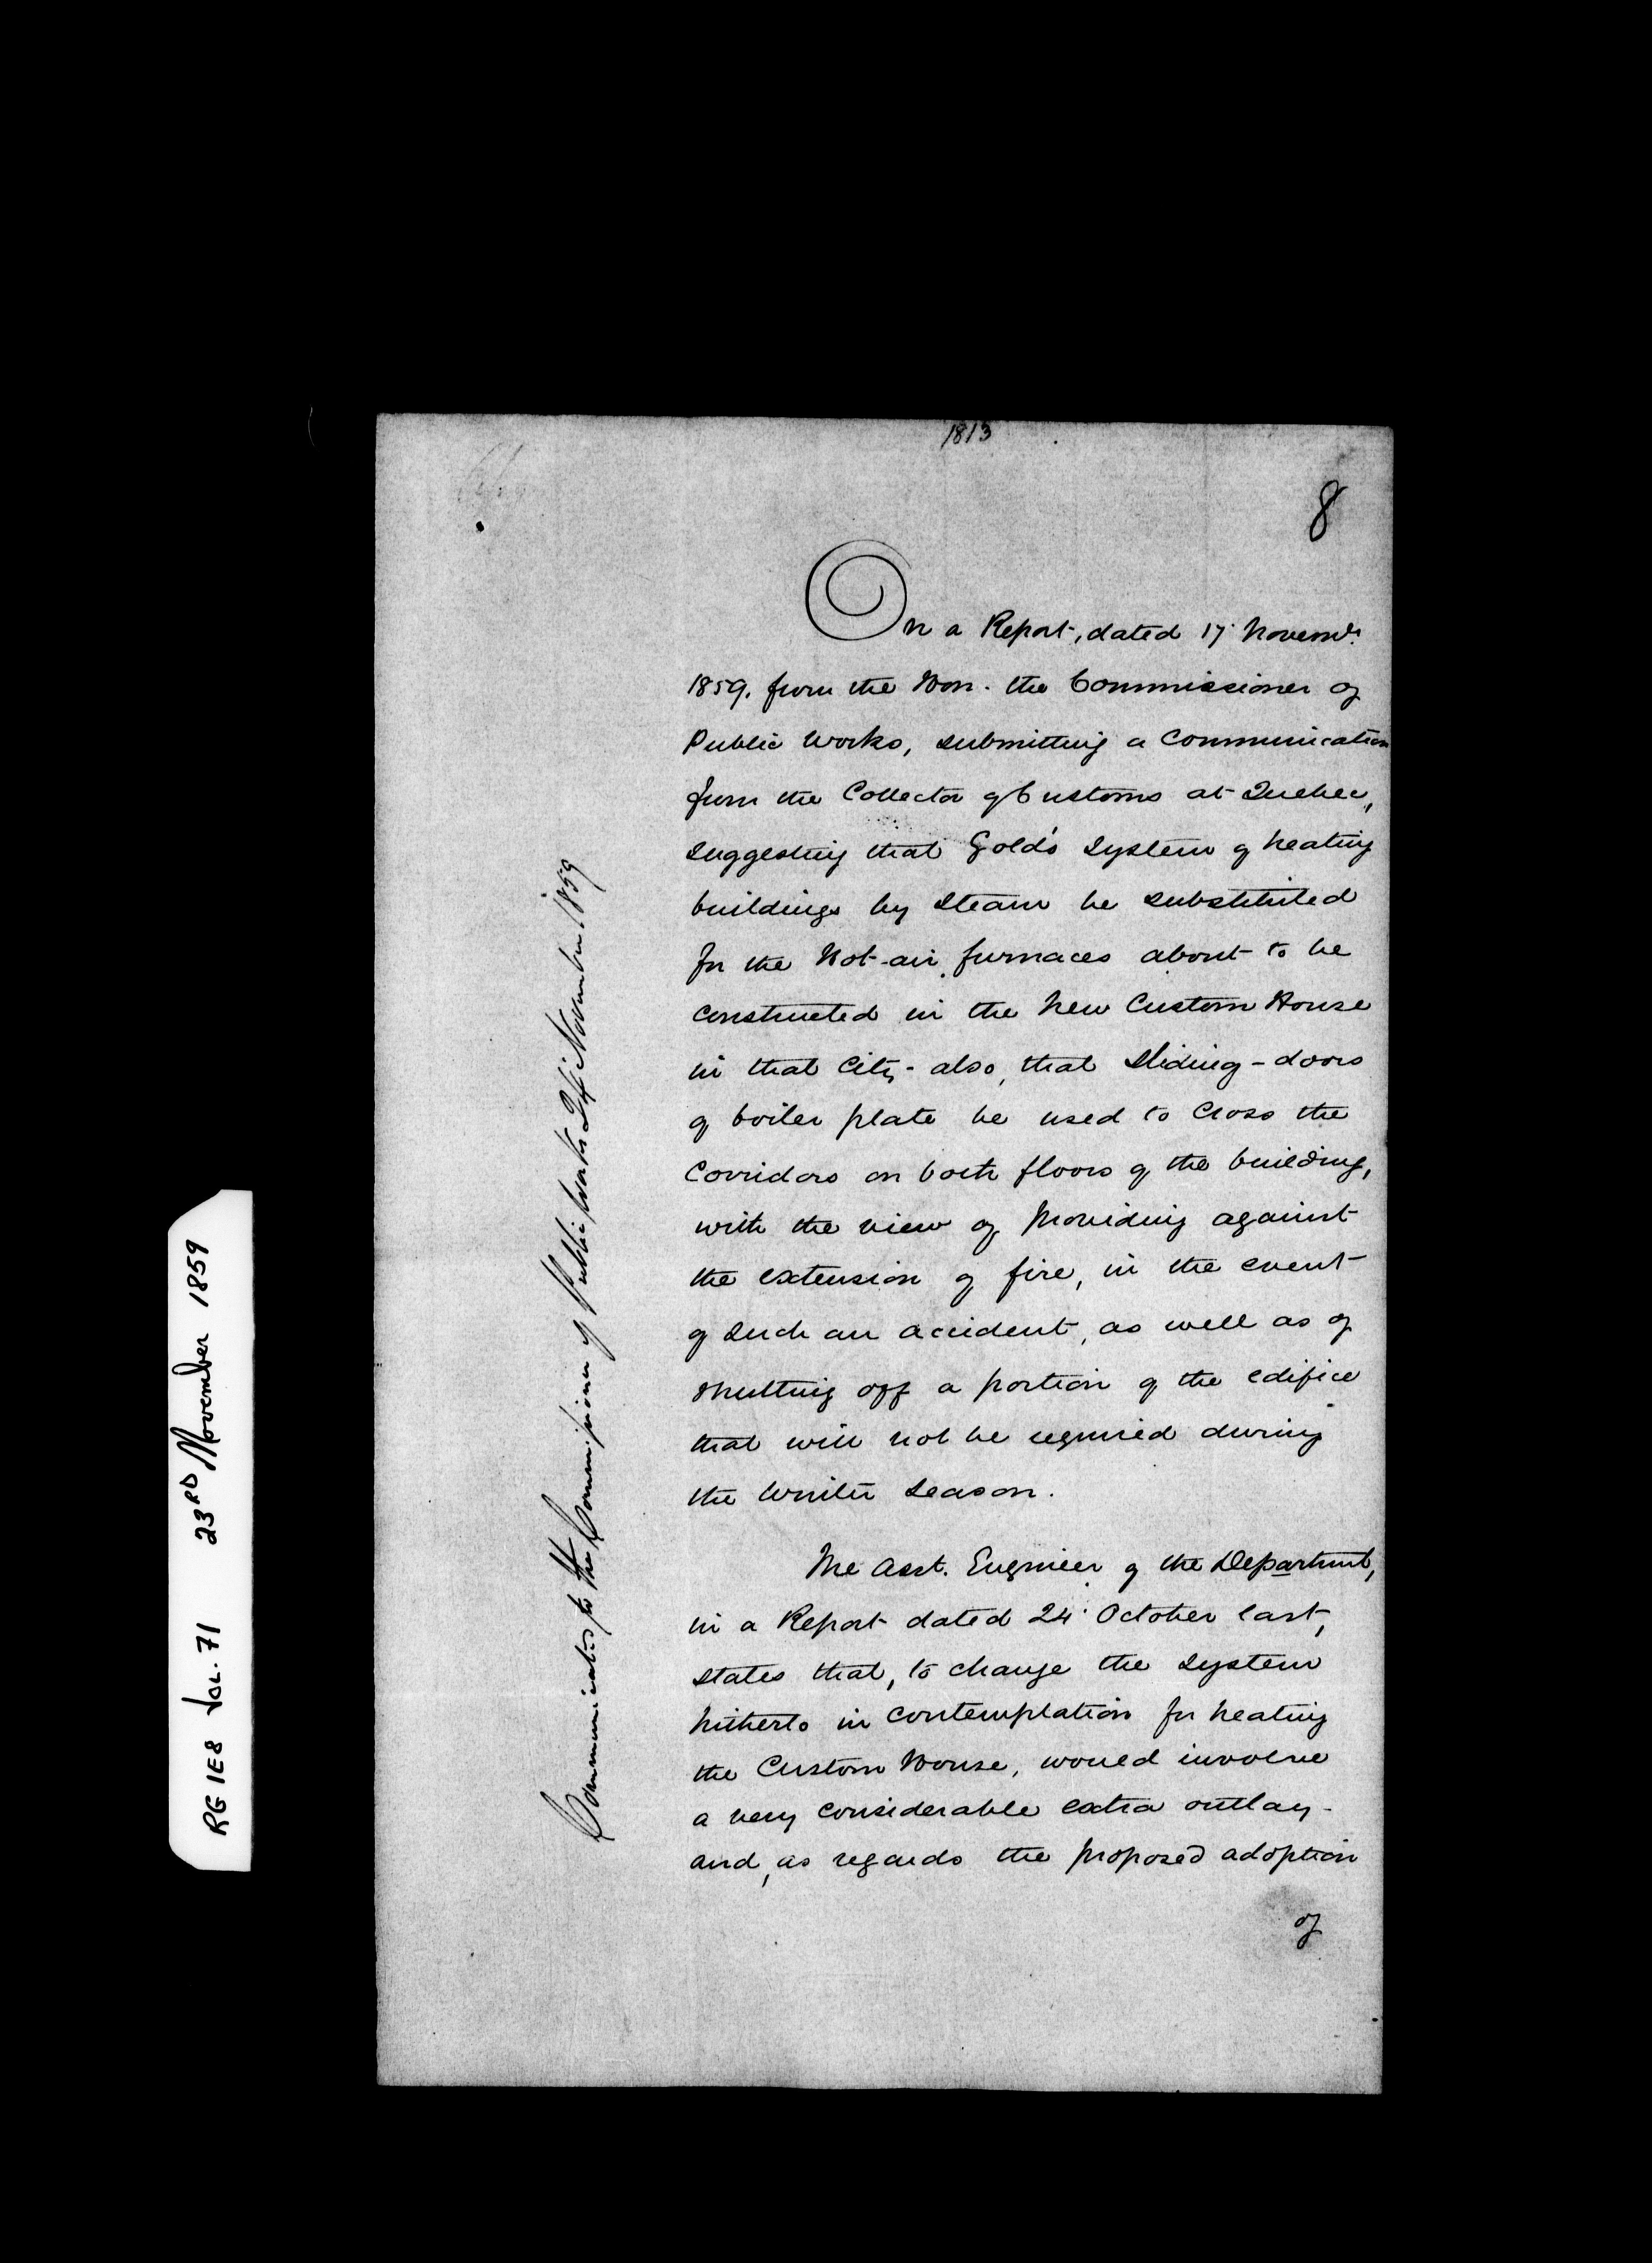 1813
8
On a Report, dated 17 Novemr.
1859. from the Hon. the Commissioner of
Public Works, submitting a Communication
from the Collector of Customs at Quebec,
suggesting that Gold's system of heating
buildings by steam be substituted
for the Hot-air furnaces about to be
constructed in the New Custom House
in that City - also, that sliding-doors
of boiler plate be used to cross the
Corridors on both floors of the building,
with the view of providing against
the extension of fire, in the event
of such an accident, as well as of
shutting off a portion of the edifice
that will not be required during
the Winter season.
The Asst. Engineer of the Department,
in a Report dated 24 October last,
states that, to change the system
hitherto in contemplation for heating
the Custom House, would involve
a very considerable extra outlay -
and, as regards the proposed adoption
of
Communicated to the Commissioner of Public Works 24 November 1859
RG 1E8 Vol. 71 23RD November 1859